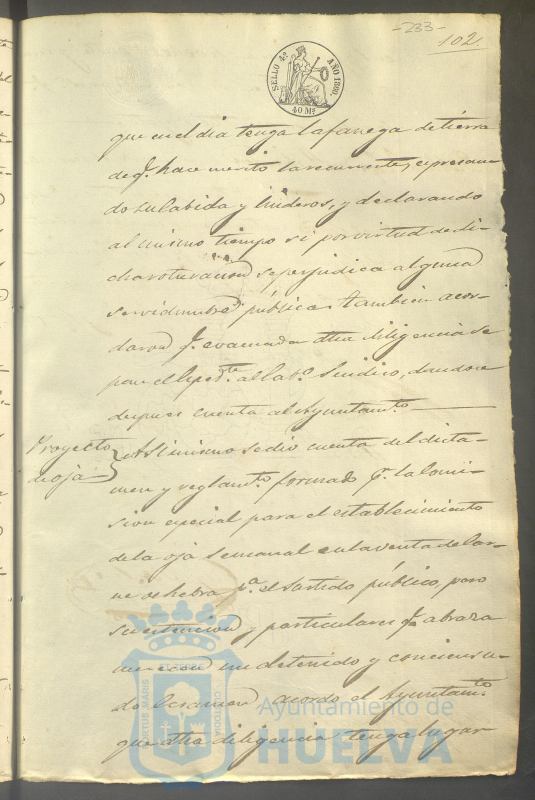 -233-
102.
SELLO 4º AÑO 1860.
40 Ms.
que en el dia tenga la fanega de tierra
de q.e hace merito la recurrente, espresan-
do su cabida y linderos, y declarando
al mismo tiempo si por virtud de di-
cha roturacion se perjudica alguna
servidumbre pública. Tambien acor-
daron q.e evacuada dha diligencia se
pase el Esped.te al Cab.o Sindico, dandose
despues cuenta al Ayuntam.to
Proyecto
de oja
Asi mismo se dió cuenta del dicta-
men y reglam.to formado p.r la Comi-
sion especial para el establecimiento
de la oja semanal en la venta de Car-
ne de hebra p.a el surtido público, pero
su estencion y particulares q.e abraza
merecen un detenido y concienzu-
do Ecsamen acordo el Ayuntam.to
que dha diligencia tenga lugar
PORTUS MARIS CUSTODIA
Ayuntamiento de
HUELVA